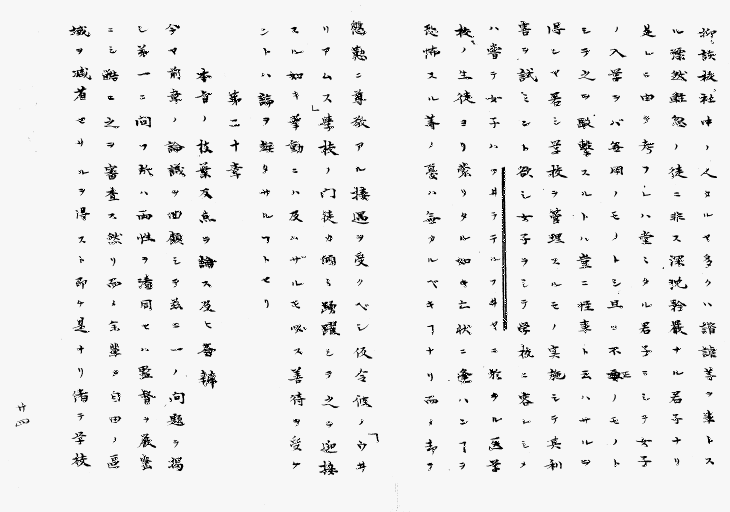 抑該校社中ノ人タルヤ多クハ諧謔等ヲ事トス
ル漂然離忽ノ徒ニ非ス深沈幹嚴ナル君子ナリ
是レニ由テ考フレハ堂々タル君子ニシテ女子
ノ入学ヲバ毎用ノモノトシ且ツ不
シテ之ヲ攻撃スルトハ豈ニ怪事ト云ハサルヲ
得シヤ若シ学校ヲ管理スルモノ実施シテ其利
害ヲ試ミント欲シ女子ヲシテ学校ニ容レシメ
ハ嘗テ女子ハ 於ケル医学
校ノ生徒ヨリ蒙リタル如キ亡状ニ逢ハンコヲ
恐怖スル等ノ憂ハ毎カルベキコナリ而メ却テ
慇懃ニ尊敬アル接遇ヲ受クベシ仮令彼ノ「ウ井
リアムス」學校ノ門徒カ傾ク踴躍シテ之ヲ迎接
スル如キ挙動ニハ及ハザルモ必ス善待ヲ受ケ
ントハ論ヲ竢タサルコトセリ
第二十章
本旨ノ枝葉反点ヲ論ス及ヒ答辯
今マ前章ノ論議ヲ回顧シテ茲ニ一ノ問題ヲ掲
シ第一ニ問フ於ハ両性ヲ済同セハ監督ヲ嚴密
ニシ務モ之ヲ審査ス然リ而メ全輩ノ自由ノ區
域ヲ减省セサルヲ得スト即ケ是ナリ偖テ学校
廿四